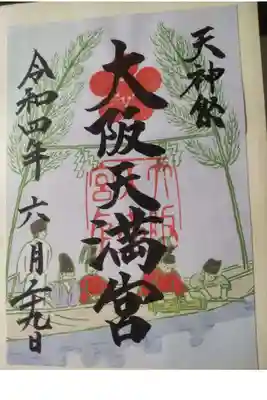 天神祭
大阪天満宮
令和四年 六月廿九日